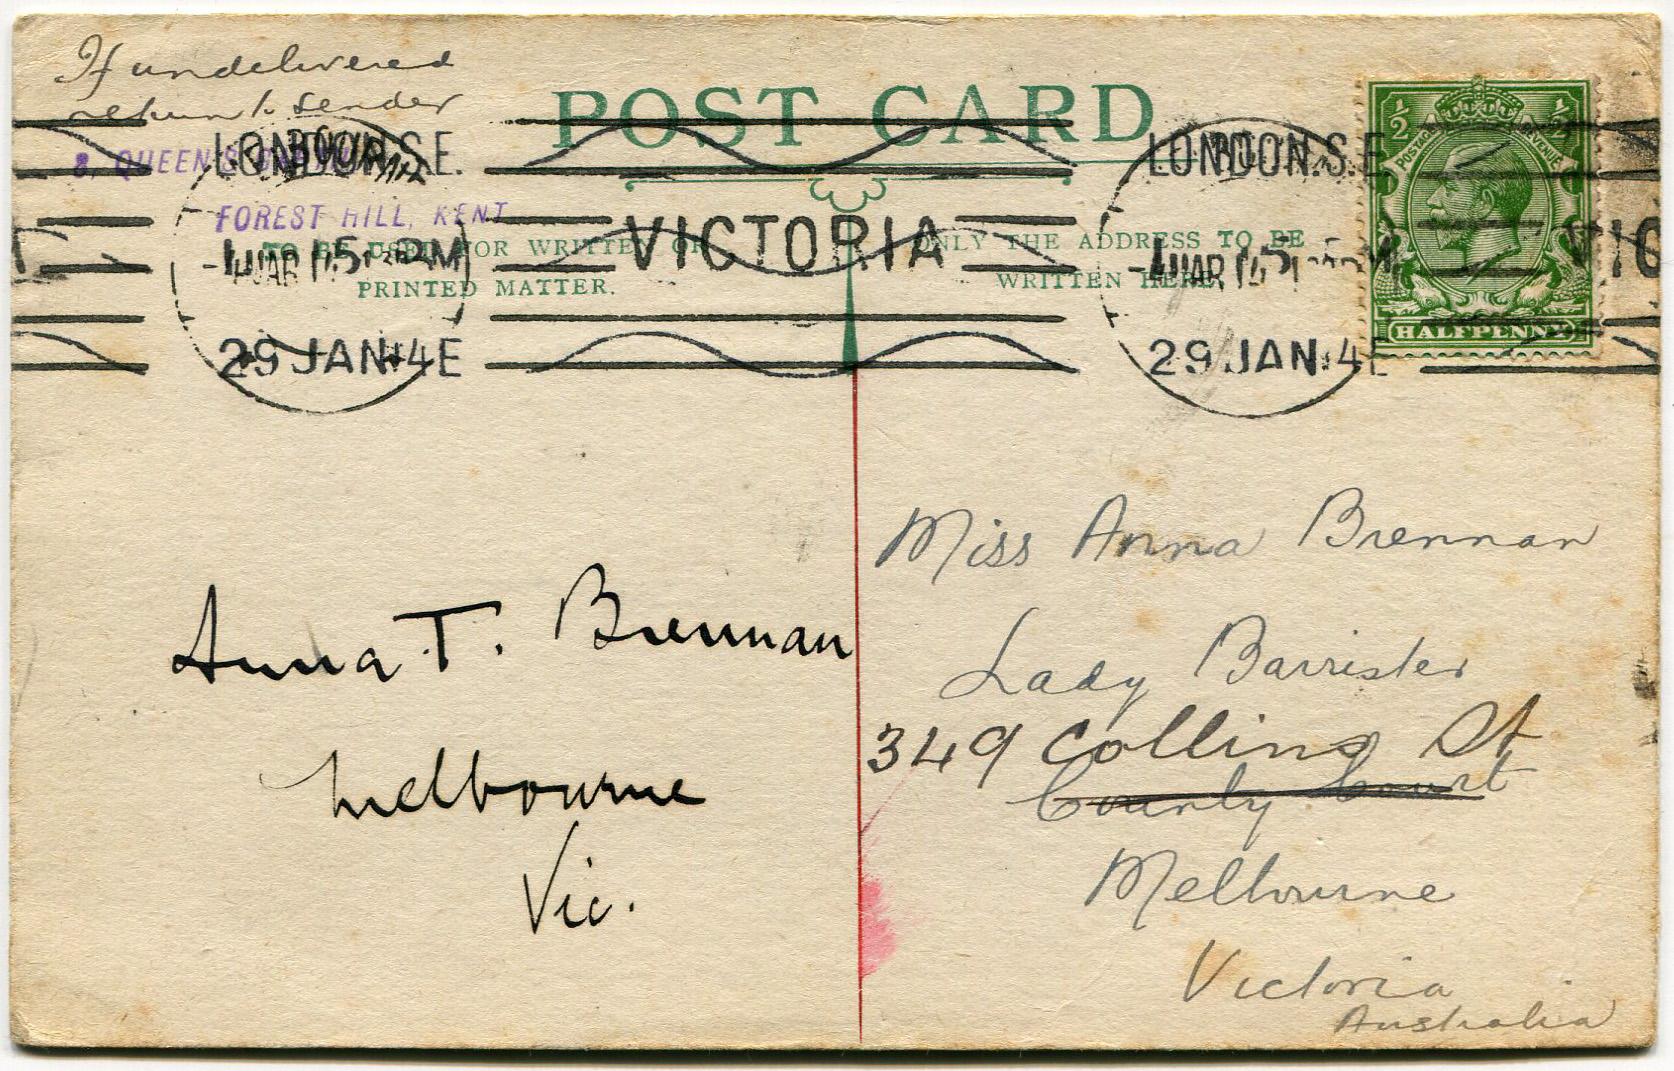 If undelivered
return to sender
8, QUEEN'S
FOREST HILL, KENT
POST CARD
TO BE USED FOR WRITTEN OR
PRINTED MATTER.
ONLY THE ADDRESS TO BE
WRITTEN HERE.
LONDON.S.E.
29 JAN 14E
VICTORIA
LONDON.S.E
29 JAN 14E
VIC
1/2 1/2
POSTAGE REVENUE
HALFPENNY
Anna T. Brennan
Melbourne
Vic.
Miss Anna Brennan
Lady Barrister
349 Collins St
County Court
Melbourne
Victoria
Australia